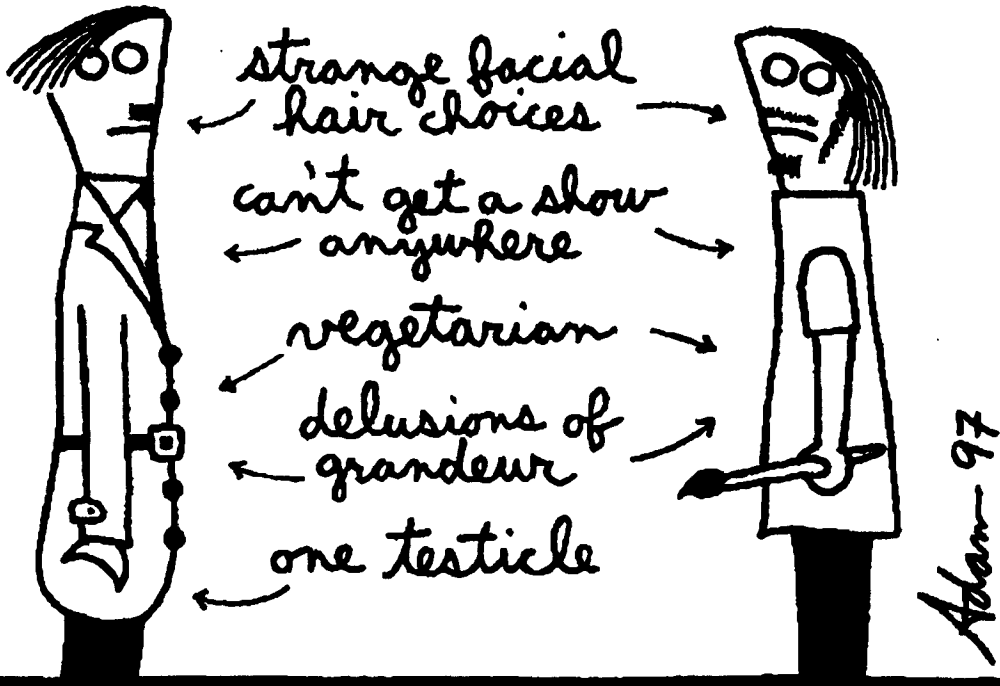 strange facial
hair choices
can't get a show
anywhere
vegetarian
delusions of
grandeur
one testicle
Adam 97